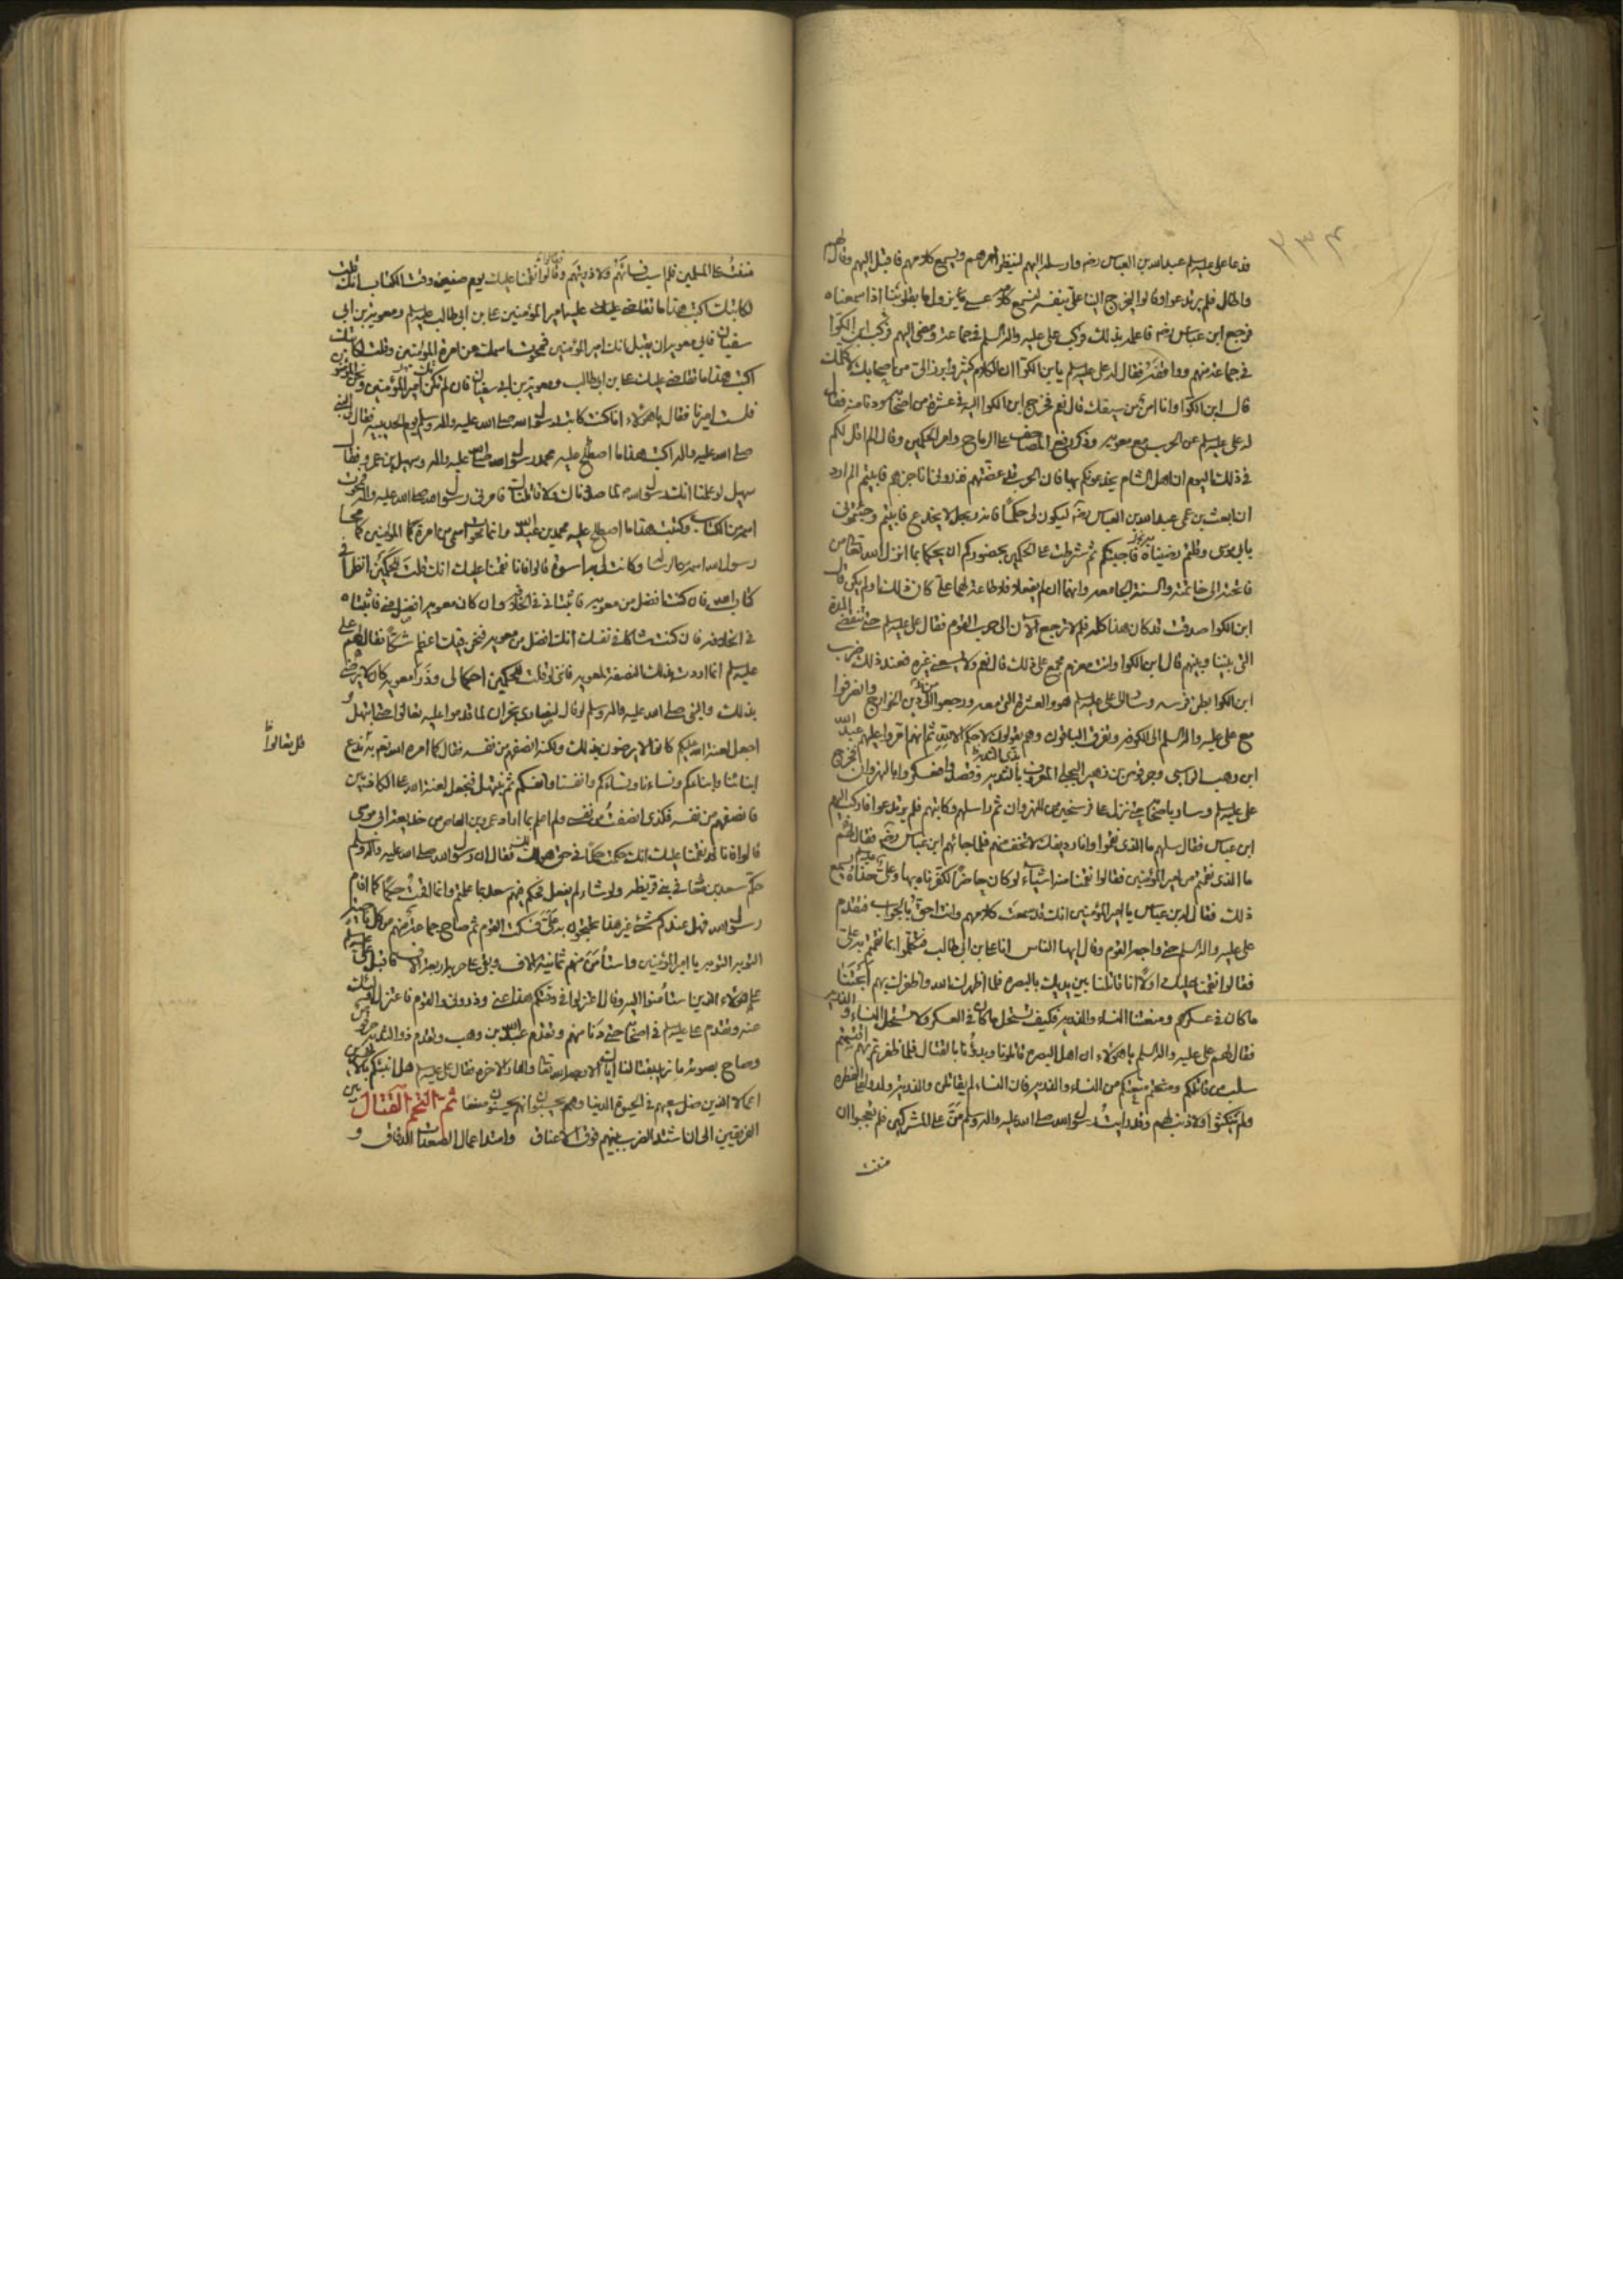 فدعا على عليه السلم عبدالله بن العباس رضه وارسله اليهم لينظر امرهم ويسمع كلامهم فاقبل اليهم وقال لهم
واطال فلم يرتدعوا وقالوا ليخرج الينا على بنفسه لنسمع كلامه عسى ما يزول ما بقلوبنا اذا سمعناه
فرجع ابن عباس رضه فاعلمه بذلك وركب على عليه واله السلم فى جماعة ومضى اليهم فركب ابن الكوا
فى جماعة منهم ووافقه فقال له على عليه السلم يابن الكوا ان الكلام كثير وابرز الى من اصحابك لاكلمك
قال ابن الكوا وانا امن من سيفك قال نعم فخرج ابن الكوا اليه فى عشرة من اصحابه ودنا منه فقال
له على عليه السلم عن الحرب مع معوية وذكر رفع المصاحف على الرماح وامر الحكمين وقال الم اقل لكم
فى ذلك اليوم ان اهل الشام يخدعونكم بها فان الحرب قد عضتهم فذرونى اناجزهم فابيتم الم ارد
ان ابعث بن عمى عبدالله بن العباس رضه ليكون لى حكما فانه رجل لا يخدع فابيتم وجئتمونى
بابى موسى وقلتم رضينا به فاجبتكم ثم شرطت على الحكمين بحضوركم ان يحكما بما انزل الله تعالى من
فاتحته الى خاتمته والسنة الجامعة وانهما ان لم يفعلا فلا طاعة لهما على كان ذلك اولم يكن قال
ابن الكوا صدقت قد كان هذا كله فلم لا ترجع الان الى حرب القوم فقال على عليه السلم حتى تنقضى المدة
التى بيننا وبينهم قال ابن الكوا وانت مجمع على ذلك قال نعم ولا يسعنى غيره فعند ذلك ضرب
ابن الكوا بطن فرسه وسار الى على عليه السلم هو والعشرة التى معه ورجعوا عن دين الخوارج وانصرفوا
مع على عليه واله السلم الى الكوفة وتفرق الباقون وهم يقولون لا حكم الا لله ثم انهم امروا عليهم عبدالله
ابن وهب الراسبى وحرقوص بن زهير البجلى المعروف بذى الثدية وعسكروا بالنهروان فخرج
على عليه السلم وسار باصحابه حتى نزل على فرسخين من النهروان ثم راسلهم وكاتبهم فلم يرتدعوا فاركب اليهم
ابن عباس فقال سلهم ما الذى نقموا وانا رديفك لا تخف منهم فلما جائهم ابن عباس رضه فقال لهم
ما الذى نقمتم من امير المؤمنين فقالوا نقمنا منه اشياء لو كان حاضرا لكفرناه بها وعلى خلفه يسمع
ذلك فقال ابن عباس يا امير المؤمنين انك قد سمعت كلامهم وانت احق بالجواب فتقدم
على عليه واله السلم حتى واجه القوم وقال ايها الناس انا على بن ابى طالب فتكلموا بما نقمتم به على
فقالوا نقمنا عليك اولا انا قاتلنا بين يديك بالبصرة فلما اظهرك الله واظفرك بهم ابحتنا
ما كان فى عسكرهم ومنعتنا النساء والذرية فكيف تستحل ما كان فى العسكر ولا تستحل النساء والذرية
فقال لهم على عليه واله السلم يا هؤلاء ان اهل البصرة قاتلونا وبدؤنا بالقتال فلما ظفرتم بهم اقتسمتم
سلب من قاتلكم ومنعتكم من النساء والذرية فان النساء لم يقاتلن والذرية ولدوا على الفطرة
ولم ينكثوا ولا ذنب لهم وقد رايت رسول الله صلى الله عليه واله وسلم من على المشركين فلم تعجبوا ان
مننت
مننت على المسلمين فلم اسب نسائهم ولا ذريتهم وقالوا نقمنا عليك يوم صفين وقت الكتاب انك قلت
لكاتبك اكتب هذا ما تقاضى عليه امير المؤمنين على بن ابى طالب عليه السلم ومعوية بن ابى
سفيان فابى معوية ان يقبل انك امير المؤمنين فمحوت اسمك من امرة المؤمنين وقلت لكاتبك
اكتب هذا ما تقاضى عليه على بن ابى طالب ومعوية بن ابى سفيان فان لم تكن امير المؤمنين ونحن المؤمنون
فلست اميرنا فقال يا هؤلاء انا كنت كاتب رسول الله صلى الله عليه واله وسلم يوم الحديبية فقال النبى
صلى الله عليه واله اكتب هذا ما اصطلح عليه محمد رسول الله صلى الله عليه واله وسهيل بن عمرو فقال
سهيل لو علمنا انك رسول الله لما صددناك ولا قاتلناك فامرنى رسول الله صلى الله عليه واله فمحوت
اسمه من الكتاب وكتبت هذا ما اصطلح عليه محمد بن عبدالله وانما محوت اسمى من امرة المؤمنين كما محا
رسول الله اسمه من الرسالة وكانت لى به اسوة قالوا فانا نقمنا عليك انك قلت للحكمين انظرا فى
كتاب الله فان كنت افضل من معوية فاثبتانى فى الخلافة وان كان معوية افضل منى فاثبتاه
فى الخلافة فان كنت شاكا فى نفسك انك افضل من معوية فنحن فيك اعظم شكا فقال لهم على
عليه السلم انما اردت بذلك النصفة لمعوية فانى لو قلت للحكمين احكما لى وذرا معوية كان لا يرضى
بذلك والنبى صلى الله عليه واله وسلم لو قال لنصارى نجران لما قدموا عليه تعالوا حتى ابتهل و
اجعل لعنة الله عليكم كانوا لا يرضون بذلك ولكنه انصفهم من نفسه فقال كما امره الله تعالى ندع
قل تعالوا
ابنائنا وابنائكم ونساءنا ونساءكم وانفسنا وانفسكم ثم نبتهل فنجعل لعنة الله على الكاذبين
فانصفهم من نفسه فكذى انصفت من نفسى ولم اعلم بما اراد عمرو بن العاص من خديعة ابى موسى
قالوا فانا نقمنا عليك انك حكمت حكما فى حق هو لك فقال ان رسول الله صلى الله عليه واله وسلم
حكم سعد بن معاذ فى بنى قريظة ولو شاء لم يفعل فحكم فيهم سعد بما علمتم وانما اقمت حكما كما اقام
رسول الله فهل عندكم شئ غير هذا تحتجون به على فسكت القوم ثم صاح جماعة منهم من كل ناحية
التوبة التوبة يا امير المؤمنين واستأمن منهم ثمانية الاف وبقى على حربه اربعة الاف فاقبل على عليه السلم
على هؤلاء الذين استأمنوا اليه وقال اعتزلوا فى وقتكم هذا عنى وذرونى والقوم فاعتزل اولئك
عنه وتقدم على عليه السلم فى اصحابه حتى دنا منهم وتقدم عبدالله بن وهب وتقدم ذو الثدية حرقوص
وصاح بصوته ما نريد بقتالنا اياك الا وجه الله تعالى والدار الاخرة فقال على عليه السلم هل انبئكم بالاخسرين
اعمالا الذين ضل سعيهم فى الحيوة الدنيا وهم يحسبون انهم يحسنون صنعا ثم التحم القتال بين
الفريقين الى ان اشتد الضرب بينهم فوق الاعناق وامتد اعمال الصعدات الدقاق و